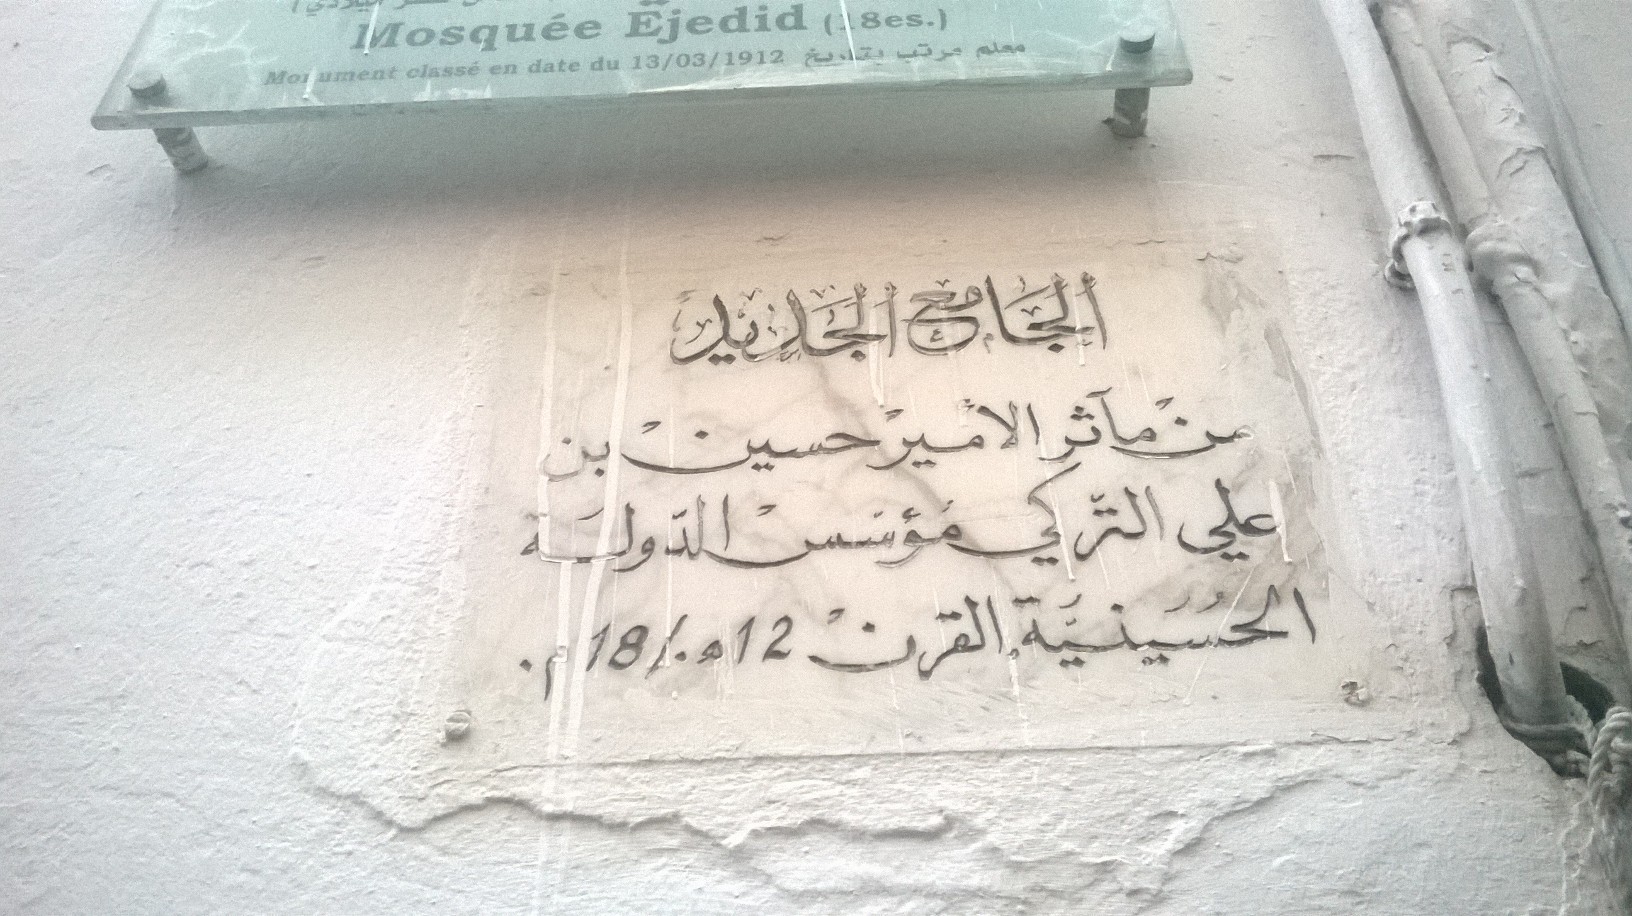 Mosquée Ëjedid (18es.)
Monument classé en date du 13/03/1912 معلم مرتب بتاريخ
الجامع الجديد
من مآثر الأمير حسين بن
علي التّركي مؤسّس الدّولة
الحُسينيّة القرن 12هـ/18م.